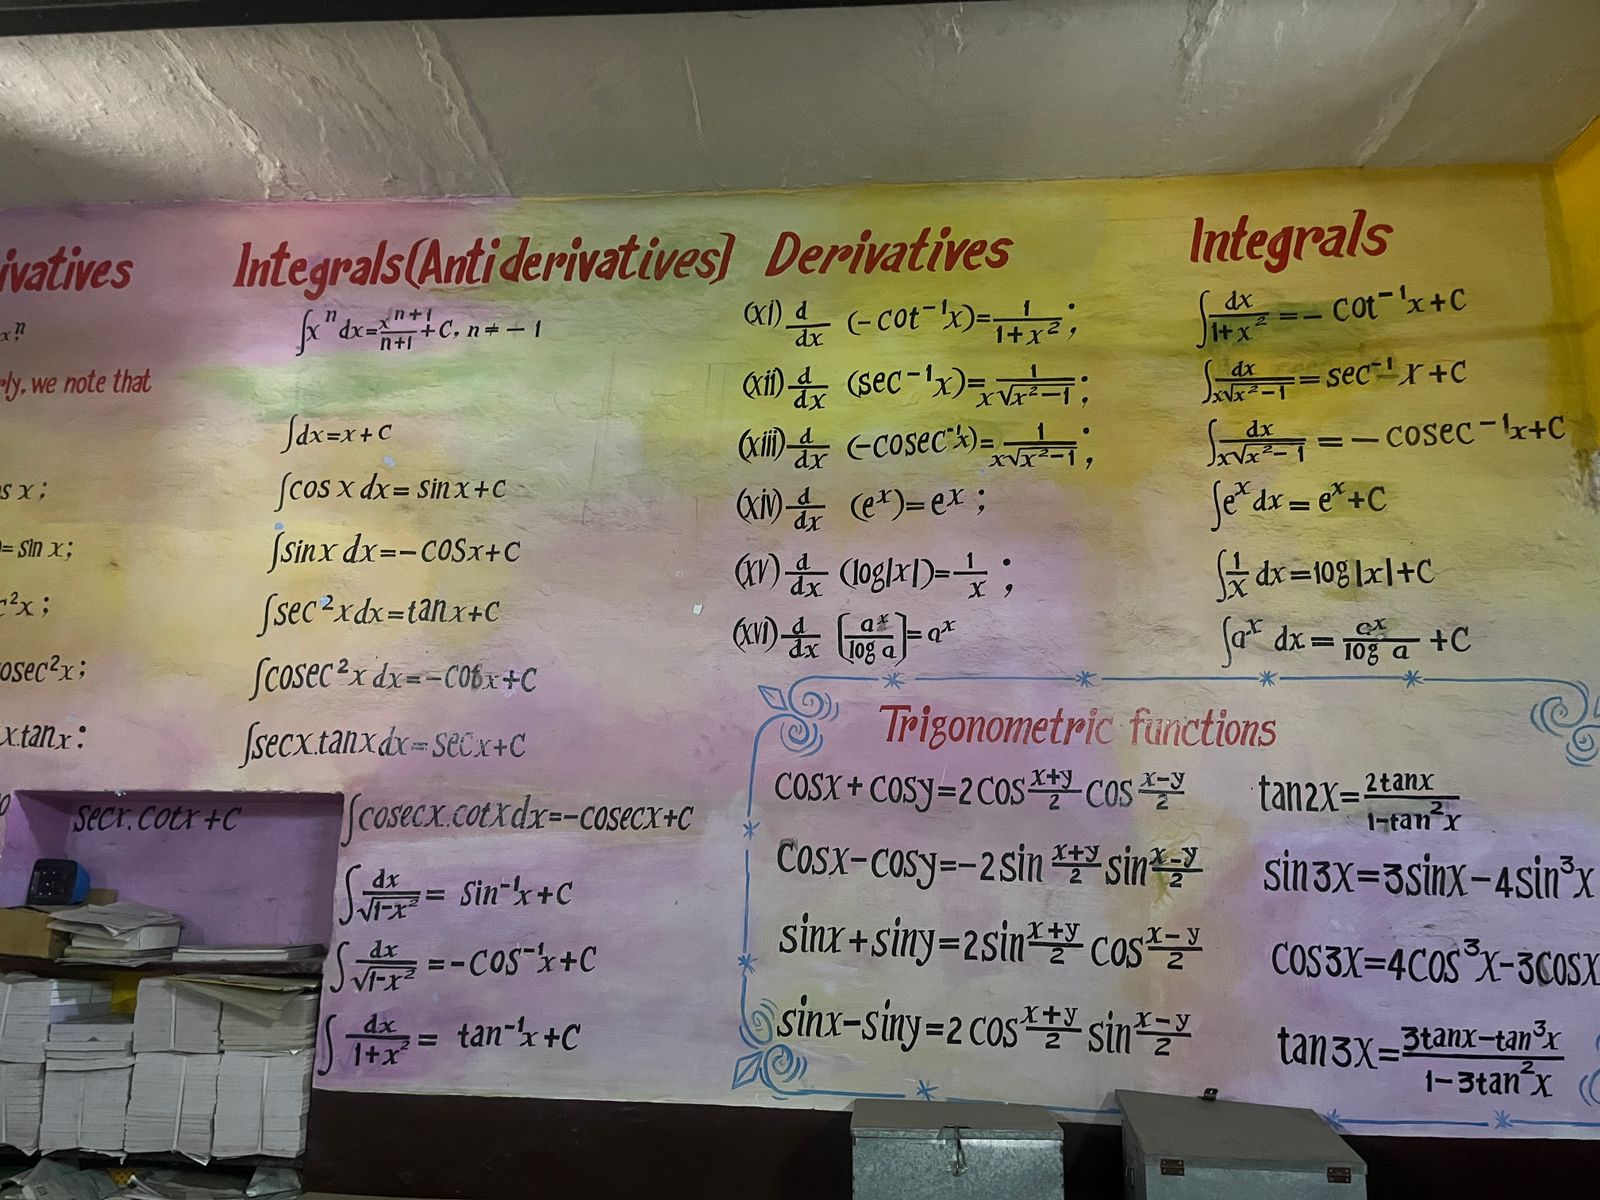 ivatives
xⁿ
rly, we note that
s x ;
= sin x;
c²x ;
osec²x;
x.tanx:
secx.cotx+C
Integrals(Anti derivatives)
∫xⁿ dx=xⁿ⁺¹/n+1+C, n≠-1
∫dx=x+C
∫cos x dx= sinx+C
∫sinx dx=-cosx+C
∫sec²xdx=tanx+C
∫cosec²x dx=-cotx+C
∫secx.tanxdx=secx+C
∫cosecx.cotxdx=-cosecx+C
∫dx/√1-x² = sin⁻¹x+C
∫dx/√1-x² =-cos⁻¹x+C
∫dx/1+x² = tan⁻¹x+C
Derivatives
(xi) d/dx (-cot⁻¹x)=1/1+x²;
(xii) d/dx (sec⁻¹x)=1/x√x²-1;
(xiii) d/dx (-cosec⁻¹x)=1/x√x²-1;
(xiv) d/dx (eˣ)=eˣ ;
(xv) d/dx (log|x|)=1/x ;
(xvi) d/dx [aˣ/log a]=aˣ
Integrals
∫dx/1+x² =- cot⁻¹x+C
∫dx/x√x²-1= sec⁻¹ x+C
∫dx/x√x²-1 =- cosec⁻¹x+C
∫eˣdx= eˣ+C
∫1/x dx=log|x|+C
∫aˣ dx= aˣ/log a +C
Trigonometric functions
cosx+cosy=2cos x+y/2 cos x-y/2
cosx-cosy=-2sin x+y/2 sin x-y/2
sinx+siny=2sin x+y/2 cos x-y/2
sinx-siny=2cos x+y/2 sin x-y/2
tan2x=2tanx/1-tan²x
sin3x=3sinx-4sin³x
cos3x=4cos³x-3cosx
tan3x=3tanx-tan³x/1-3tan²x